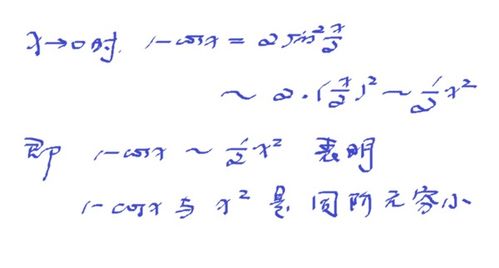 x→0时, 1-cosx = 2sin²x/2
~ 2·(x/2)² ~ 1/2x²
即 1-cosx ~ 1/2x² 表明
1-cosx与x²是同阶无穷小